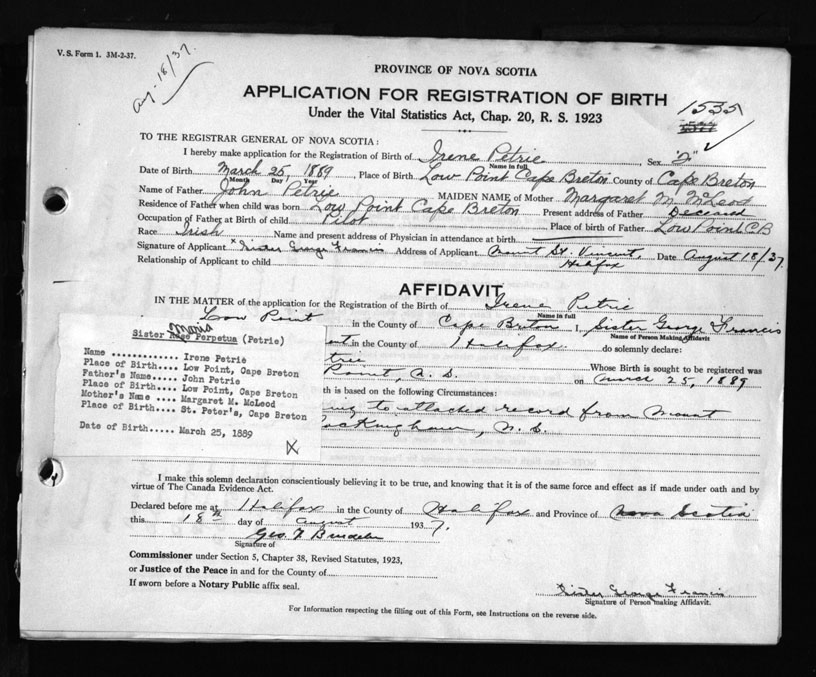 V. S. Form 1. 3M-2-37.
Aug-18/37.
PROVINCE OF NOVA SCOTIA
APPLICATION FOR REGISTRATION OF BIRTH
Under the Vital Statistics Act, Chap. 20, R. S. 1923
1535
TO THE REGISTRAR GENERAL OF NOVA SCOTIA:
I hereby make application for the Registration of Birth of Irene Petrie, Sex
Name in full
Date of Birth March 25, 1889, Place of Birth Low Point Cape Breton County of Cape Breton
Month Day Year
Name of Father John Petrie MAIDEN NAME of Mother Margaret M. McLeod
Residence of Father when child was born Low Point Cape Breton Present address of Father Deceased
Occupation of Father at Birth of child Pilot Place of birth of Father Low Point C.B
Race Irish Name and present address of Physician in attendance at birth
Signature of Applicant x Sister George Francis Address of Applicant Mount St. Vincent, Date August 18/37.
Relationship of Applicant to child Halifax
AFFIDAVIT
IN THE MATTER of the application for the Registration of the Birth of Irene Petrie
Name in full
Low Point in the County of Cape Breton I, Sister George Francis
Name of Person Making Affidavit
in the County of Halifax do solemnly declare:
trie Whose Birth is sought to be registered was
Point, on March 25, 1889
th is based on the following Circumstances:
ing to attached record from Mount
ockingham, N. S.
Sister Maria Perpetua (Petrie)
Name ............. Irene Petrie
Place of Birth.... Low Point, Cape Breton
Father's Name..... John Petrie
Place of Birth.... Low Point, Cape Breton
Mother's Name .... Margaret M. McLeod
Place of Birth.... St. Peter's, Cape Breton
Date of Birth..... March 25, 1889
X
I make this solemn declaration conscientiously believing it to be true, and knowing that it is of the same force and effect as if made under oath and by
virtue of The Canada Evidence Act.
Declared before me at Halifax in the County of Halifax and Province of Nova Scotia
this 18th day of August 1937.
Geo. F.
Signature of
Commissioner under Section 5, Chapter 38, Revised Statutes, 1923,
or Justice of the Peace in and for the County of
If sworn before a Notary Public affix seal.
Sister George Francis
Signature of Person making Affidavit.
For Information respecting the filling out of this Form, see Instructions on the reverse side.